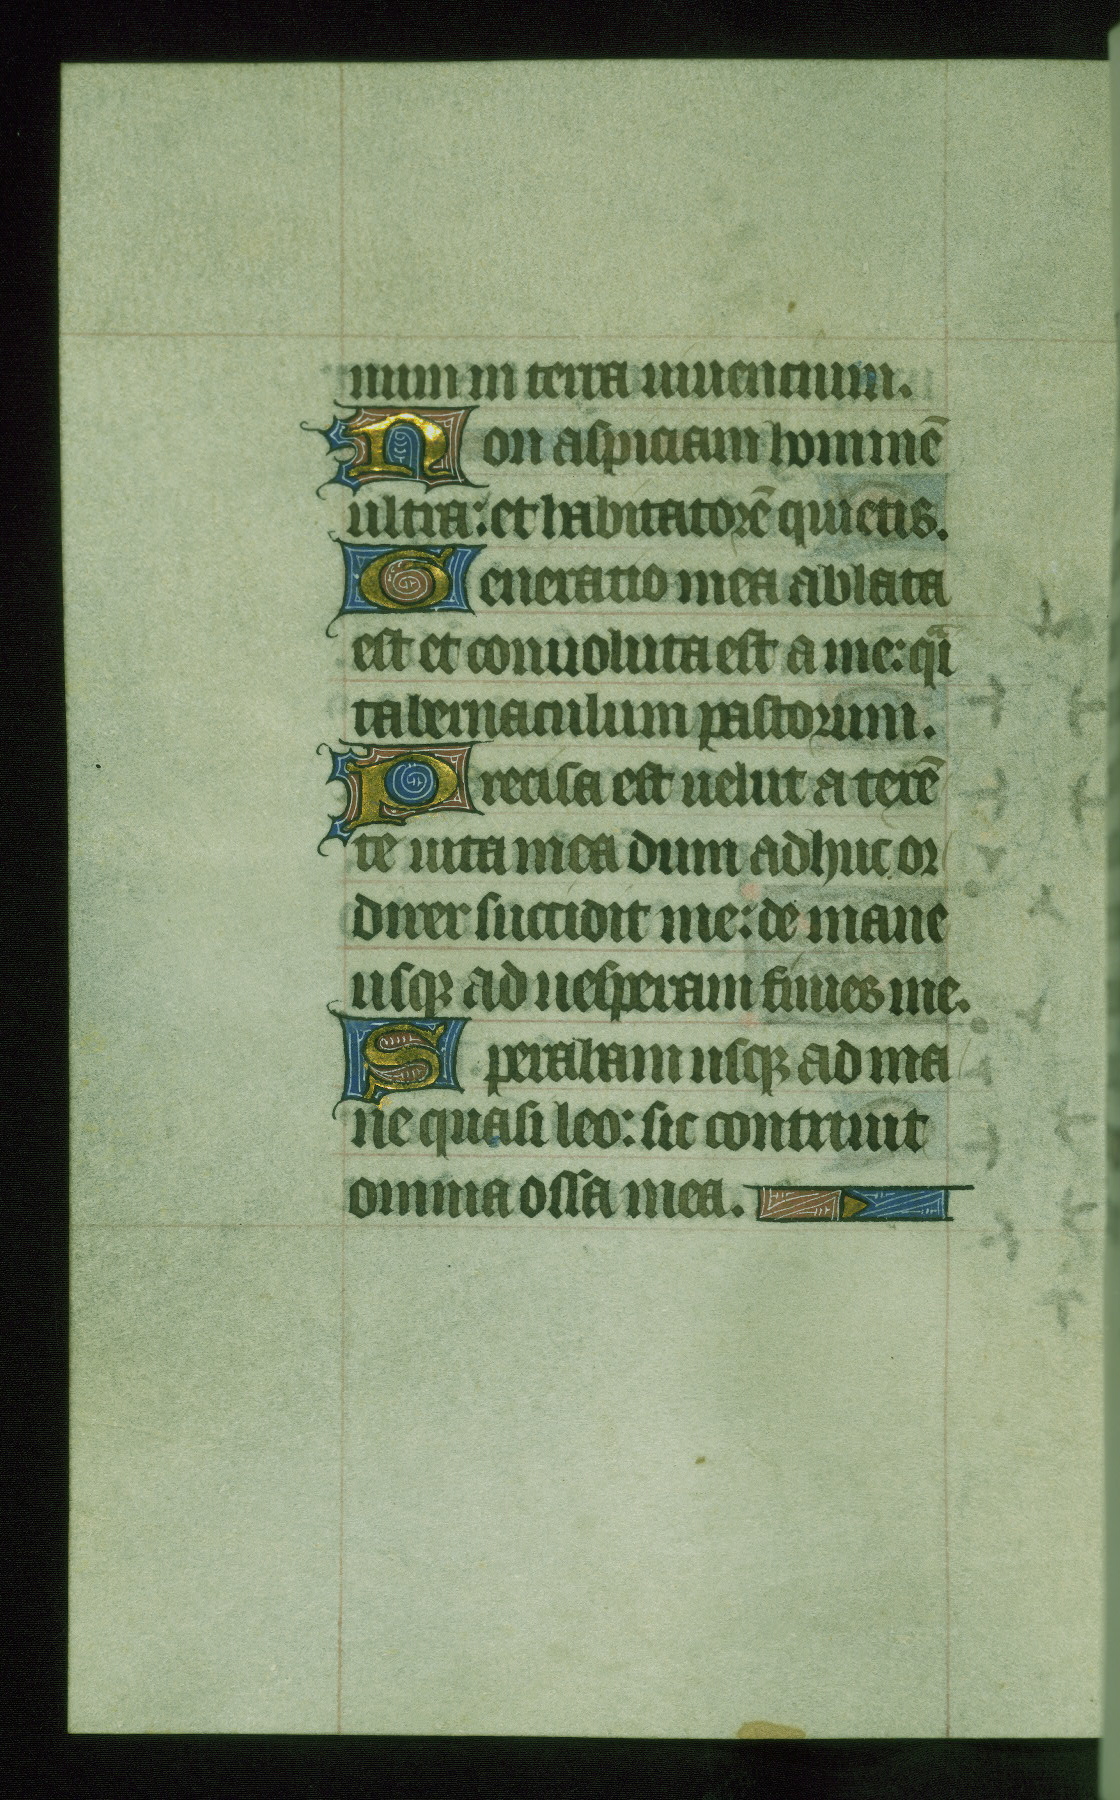 num in terra uiuencium.
Non aspiciam hominē
ultra: et habitatorē quietis.
Generatio mea ablata
est et conuoluta est a me: qͥ
tabernaculum pastorum.
Precisa est uelut a texē
te uita mea dum adhuc or
direr succidit me: de mane
usqꝫ ad uesperam finies me.
Sperabam usqꝫ ad ma
ne quasi leo: sic contriuit
omnia ossa mea.